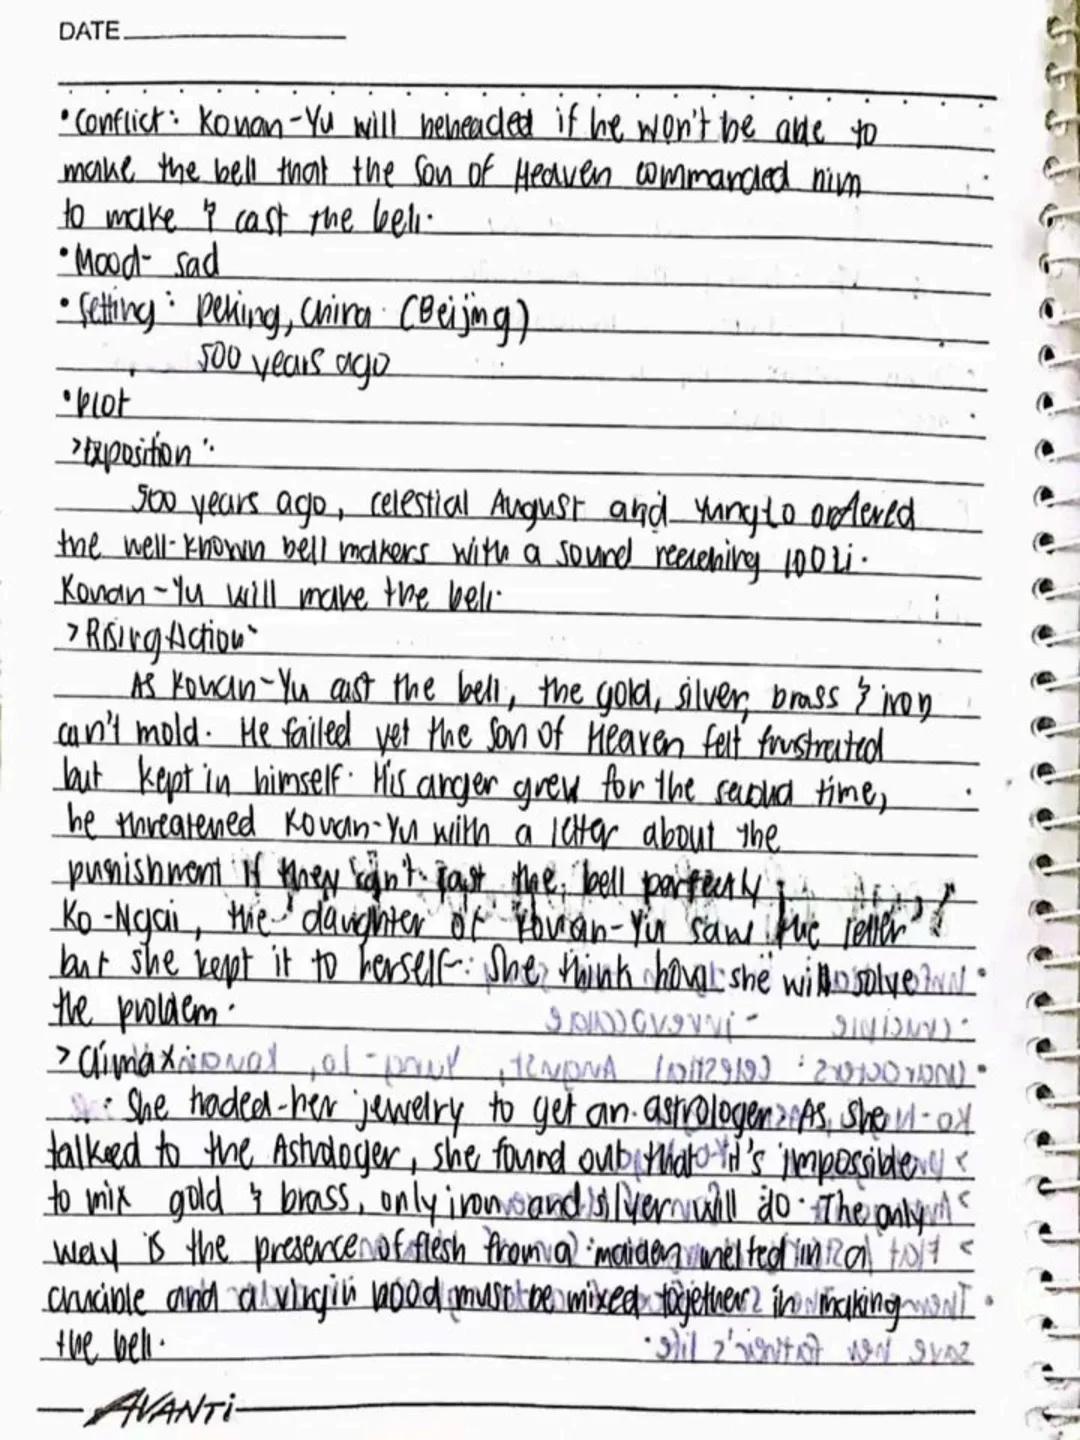 DATE
• Conflict: Kouan-Yu will beheaded if he won't be able to
make the bell that the Son of Heaven commanded him
to make & cast the bell.
• Mood- sad
• Setting: Peking, China (Beijing)
500 years ago
• Plot
> Exposition:
500 years ago, celestial August and Yunglo ordered
the well-known bell makers with a sound reaching 100 Li.
Kouan-Yu will make the bell.
> Rising Action
As Kouan-Yu cast the bell, the gold, silver, brass & iron
can't mold. He failed yet the Son of Heaven felt frustrated
but kept in himself. His anger grew for the second time,
he threatened Kouan-Yu with a letter about the
punishment if they can't cast the bell perfectly.
Ko-Ngai, the daughter of Kouan-Yu saw the letter
but she kept it to herself. She think how she will solve
the problem.
> Climax
She traded her jewelry to get an astrologer. As she
talked to the Astrologer, she found out that it's impossible
to mix gold & brass, only iron and silver will do. The only
way is the presence of flesh from a maiden melted in a
crucible and a virgin blood must be mixed together in making
the bell.
AVANTi